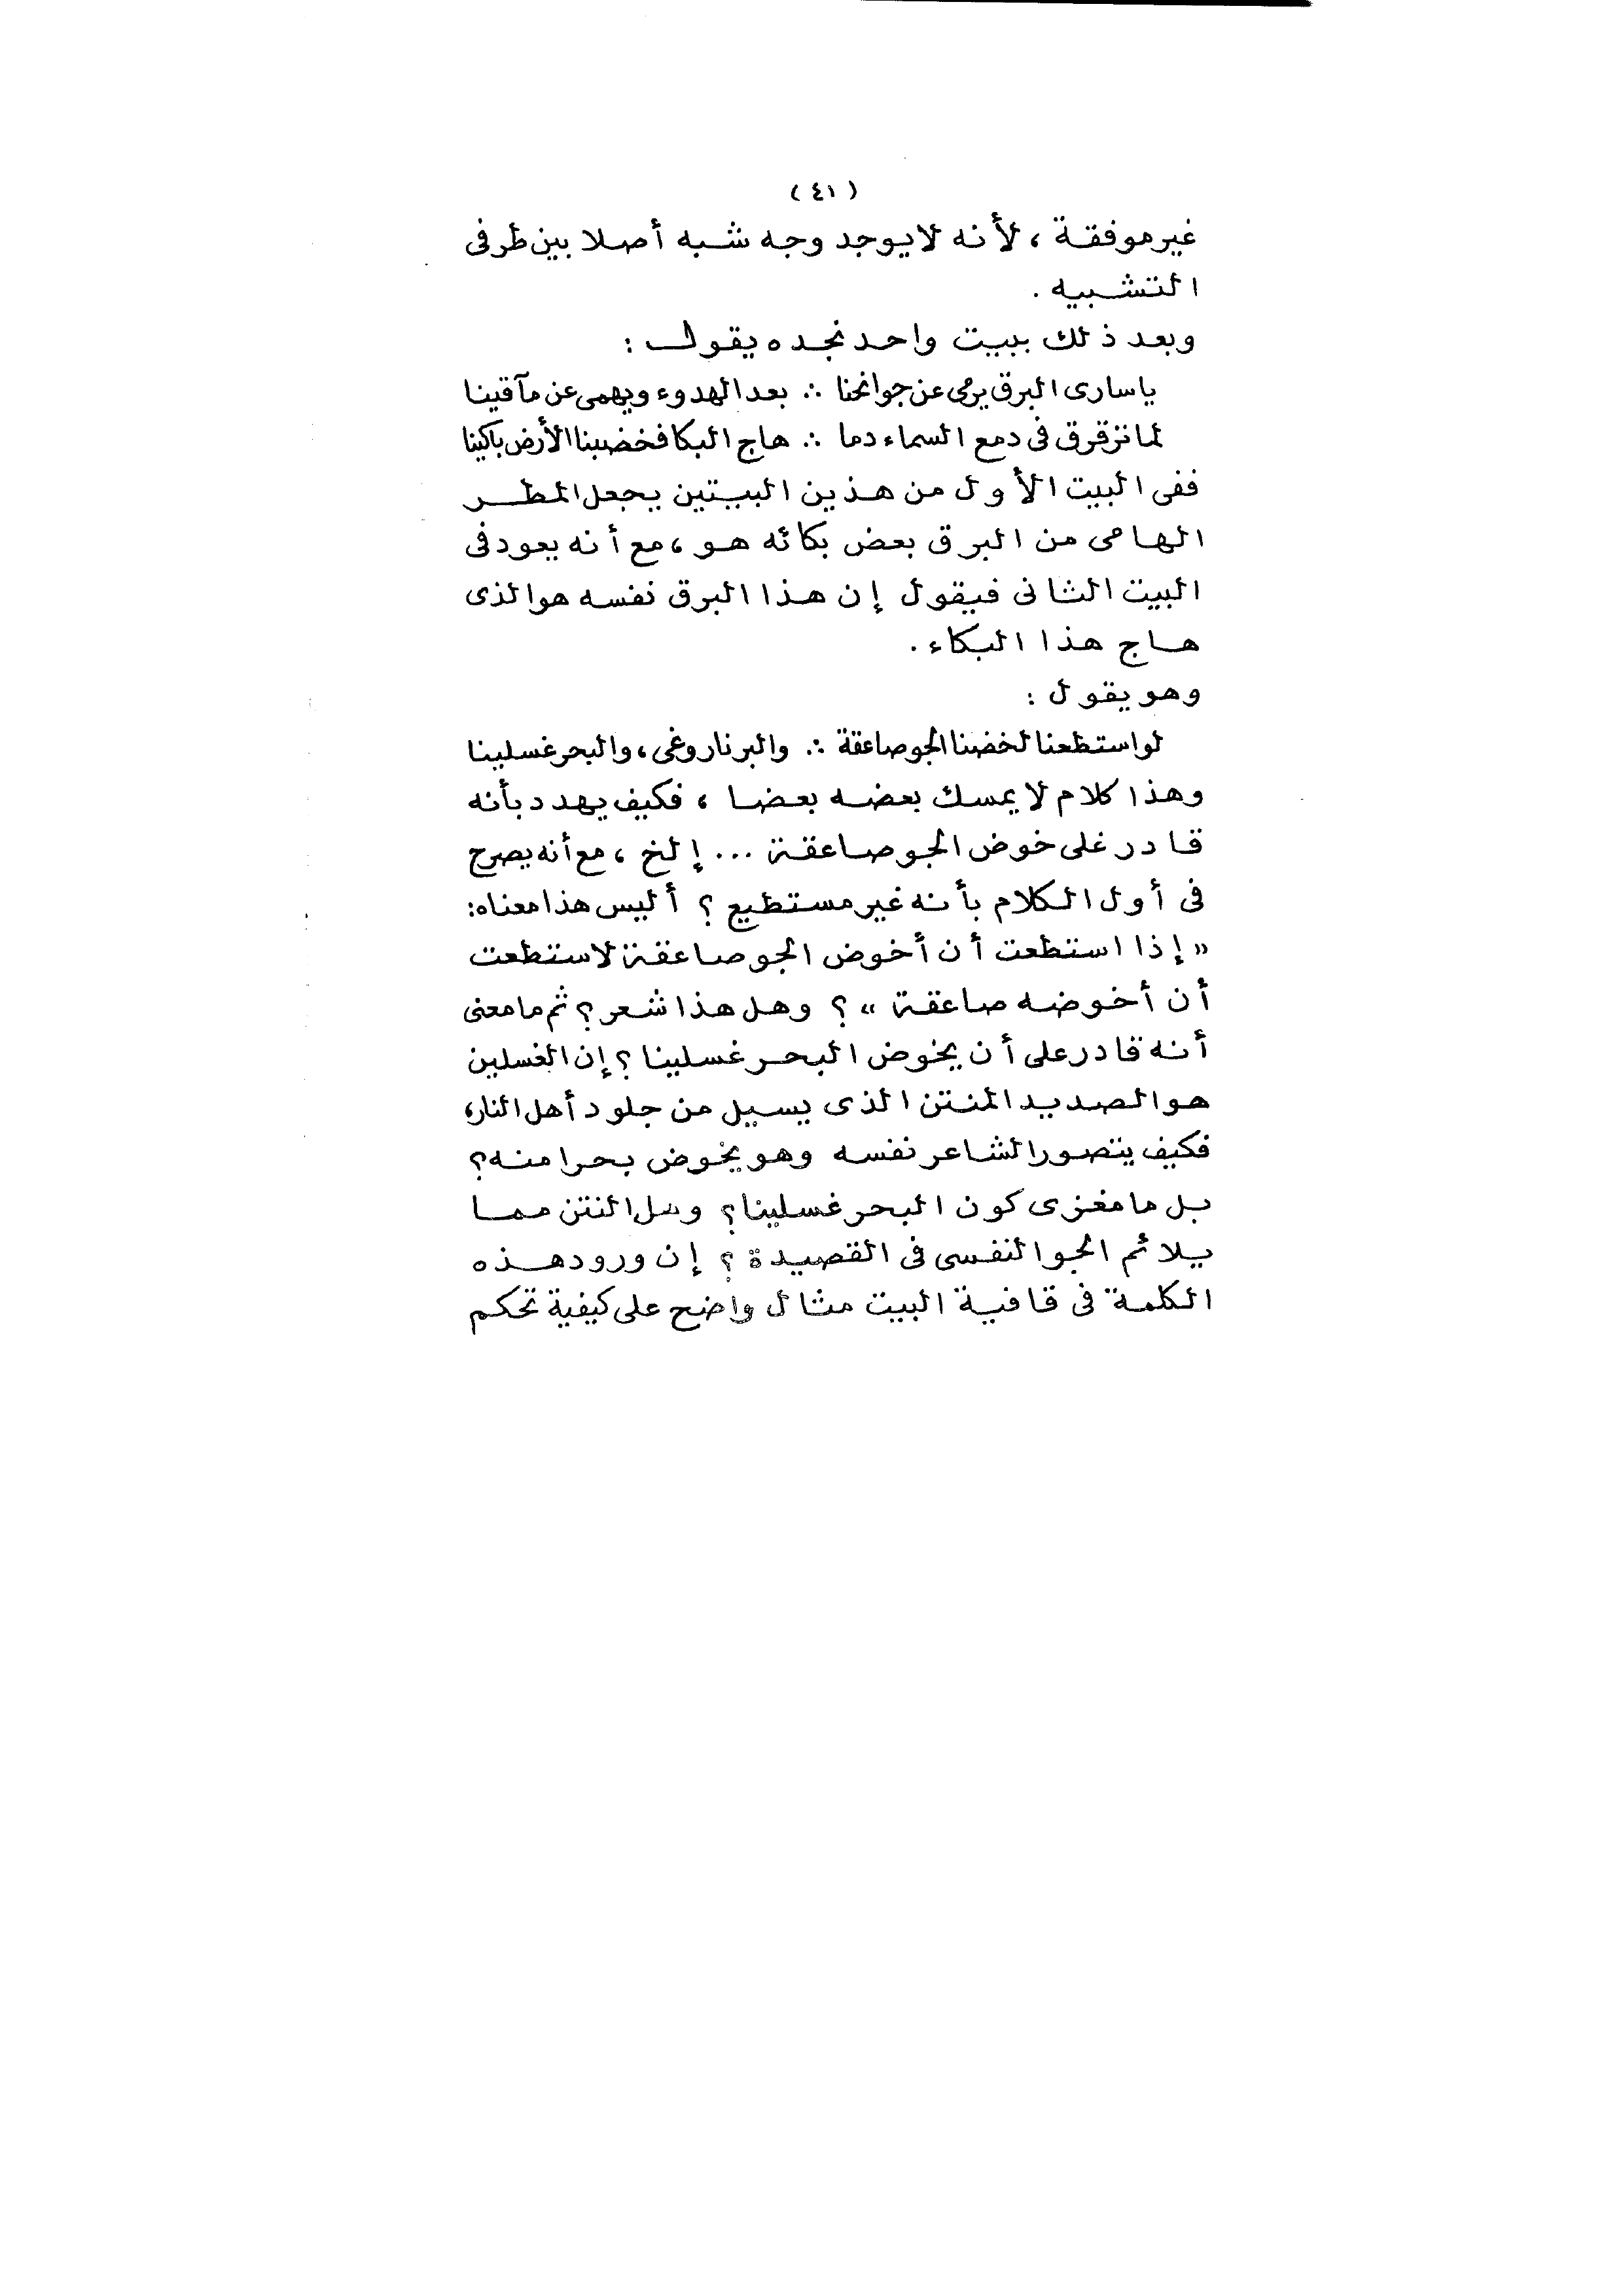 ( ٤١ )
غير موفقة ، لأنه لا يوجد وجه شبه أصلا بين طرفى
التشبيه .
وبعد ذلك ببيت واحد نجده يقول :
ياسارى البرق يرمى عن جوانحنا ∴ بعد الهدوء ويهمى عن مآقينا
لما ترقرق فى دمع السماء دما ∴ هاج البكا فخضبنا الأرض باكينا
ففى البيت الأول من هذين البيتين يجعل المطر
الهامى من البرق بعض بكائه هو ، مع أنه يعود فى
البيت الثانى فيقول إن هذا البرق نفسه هو الذى
هاج هذا البكاء .
وهو يقول :
لو استطعنا لخضنا الجو صاعقة ∴ والبر نار وغى ، والبحر غسلينا
وهذا كلام لا يمسك بعضه بعضا ، فكيف يهدد بأنه
قادر غلى خوض الجو صاعقة ... إلخ ، مع أنه يصرح
فى أول الكلام بأنه غير مستطيع ؟ أليس هذا معناه :
« إذا استطعت أن أخوض الجو صاعقة لاستطعت
أن أخوضه صاعقة » ؟ وهل هذا شعر ؟ ثم ما معنى
أنه قادر على أن يخوض البحر غسلينا ؟ إن الغسلين
هو الصديد المنتن الذى يسيل من جلود أهل النار ،
فكيف يتصور الشاعر نفسه وهو يخوض بحرا منه ؟
بل ما مغزى كون البحر غسلينا ؟ وهل النتن مما
يلائم الجو النفسى فى القصيدة ؟ إن ورود هذه
الكلمة فى قافية البيت مثال واضح على كيفية تحكم